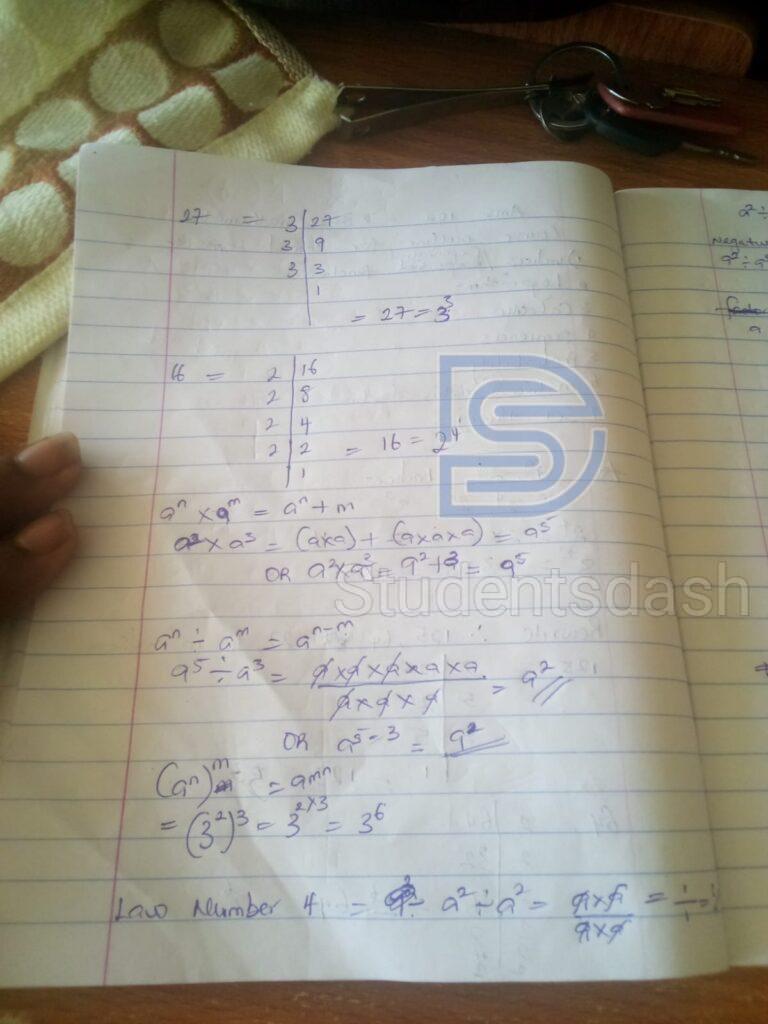 27 = 3 | 27
3 | 9
3 | 3
1
= 27 = 3³
16 = 2 | 16
2 | 8
2 | 4
2 | 2 = 16 = 2⁴
1
aⁿ × aᵐ = aⁿ + m
a² × a³ = (a×a) + (a×a×a) = a⁵
OR a² × a³ = a²⁺³ = a⁵
Studentsdash
aⁿ ÷ aᵐ = aⁿ⁻ᵐ
a⁵ ÷ a³ = a×a×a×a×a / a×a×a = a²
OR a⁵⁻³ = a²
(aⁿ)ᵐ = aᵐⁿ
= (3²)³ = 3²ˣ³ = 3⁶
Law Number 4 = a² ÷ a² = a×a / a×a = 1/1 =
a² ÷
Negativ
a² ÷ a⁵
a